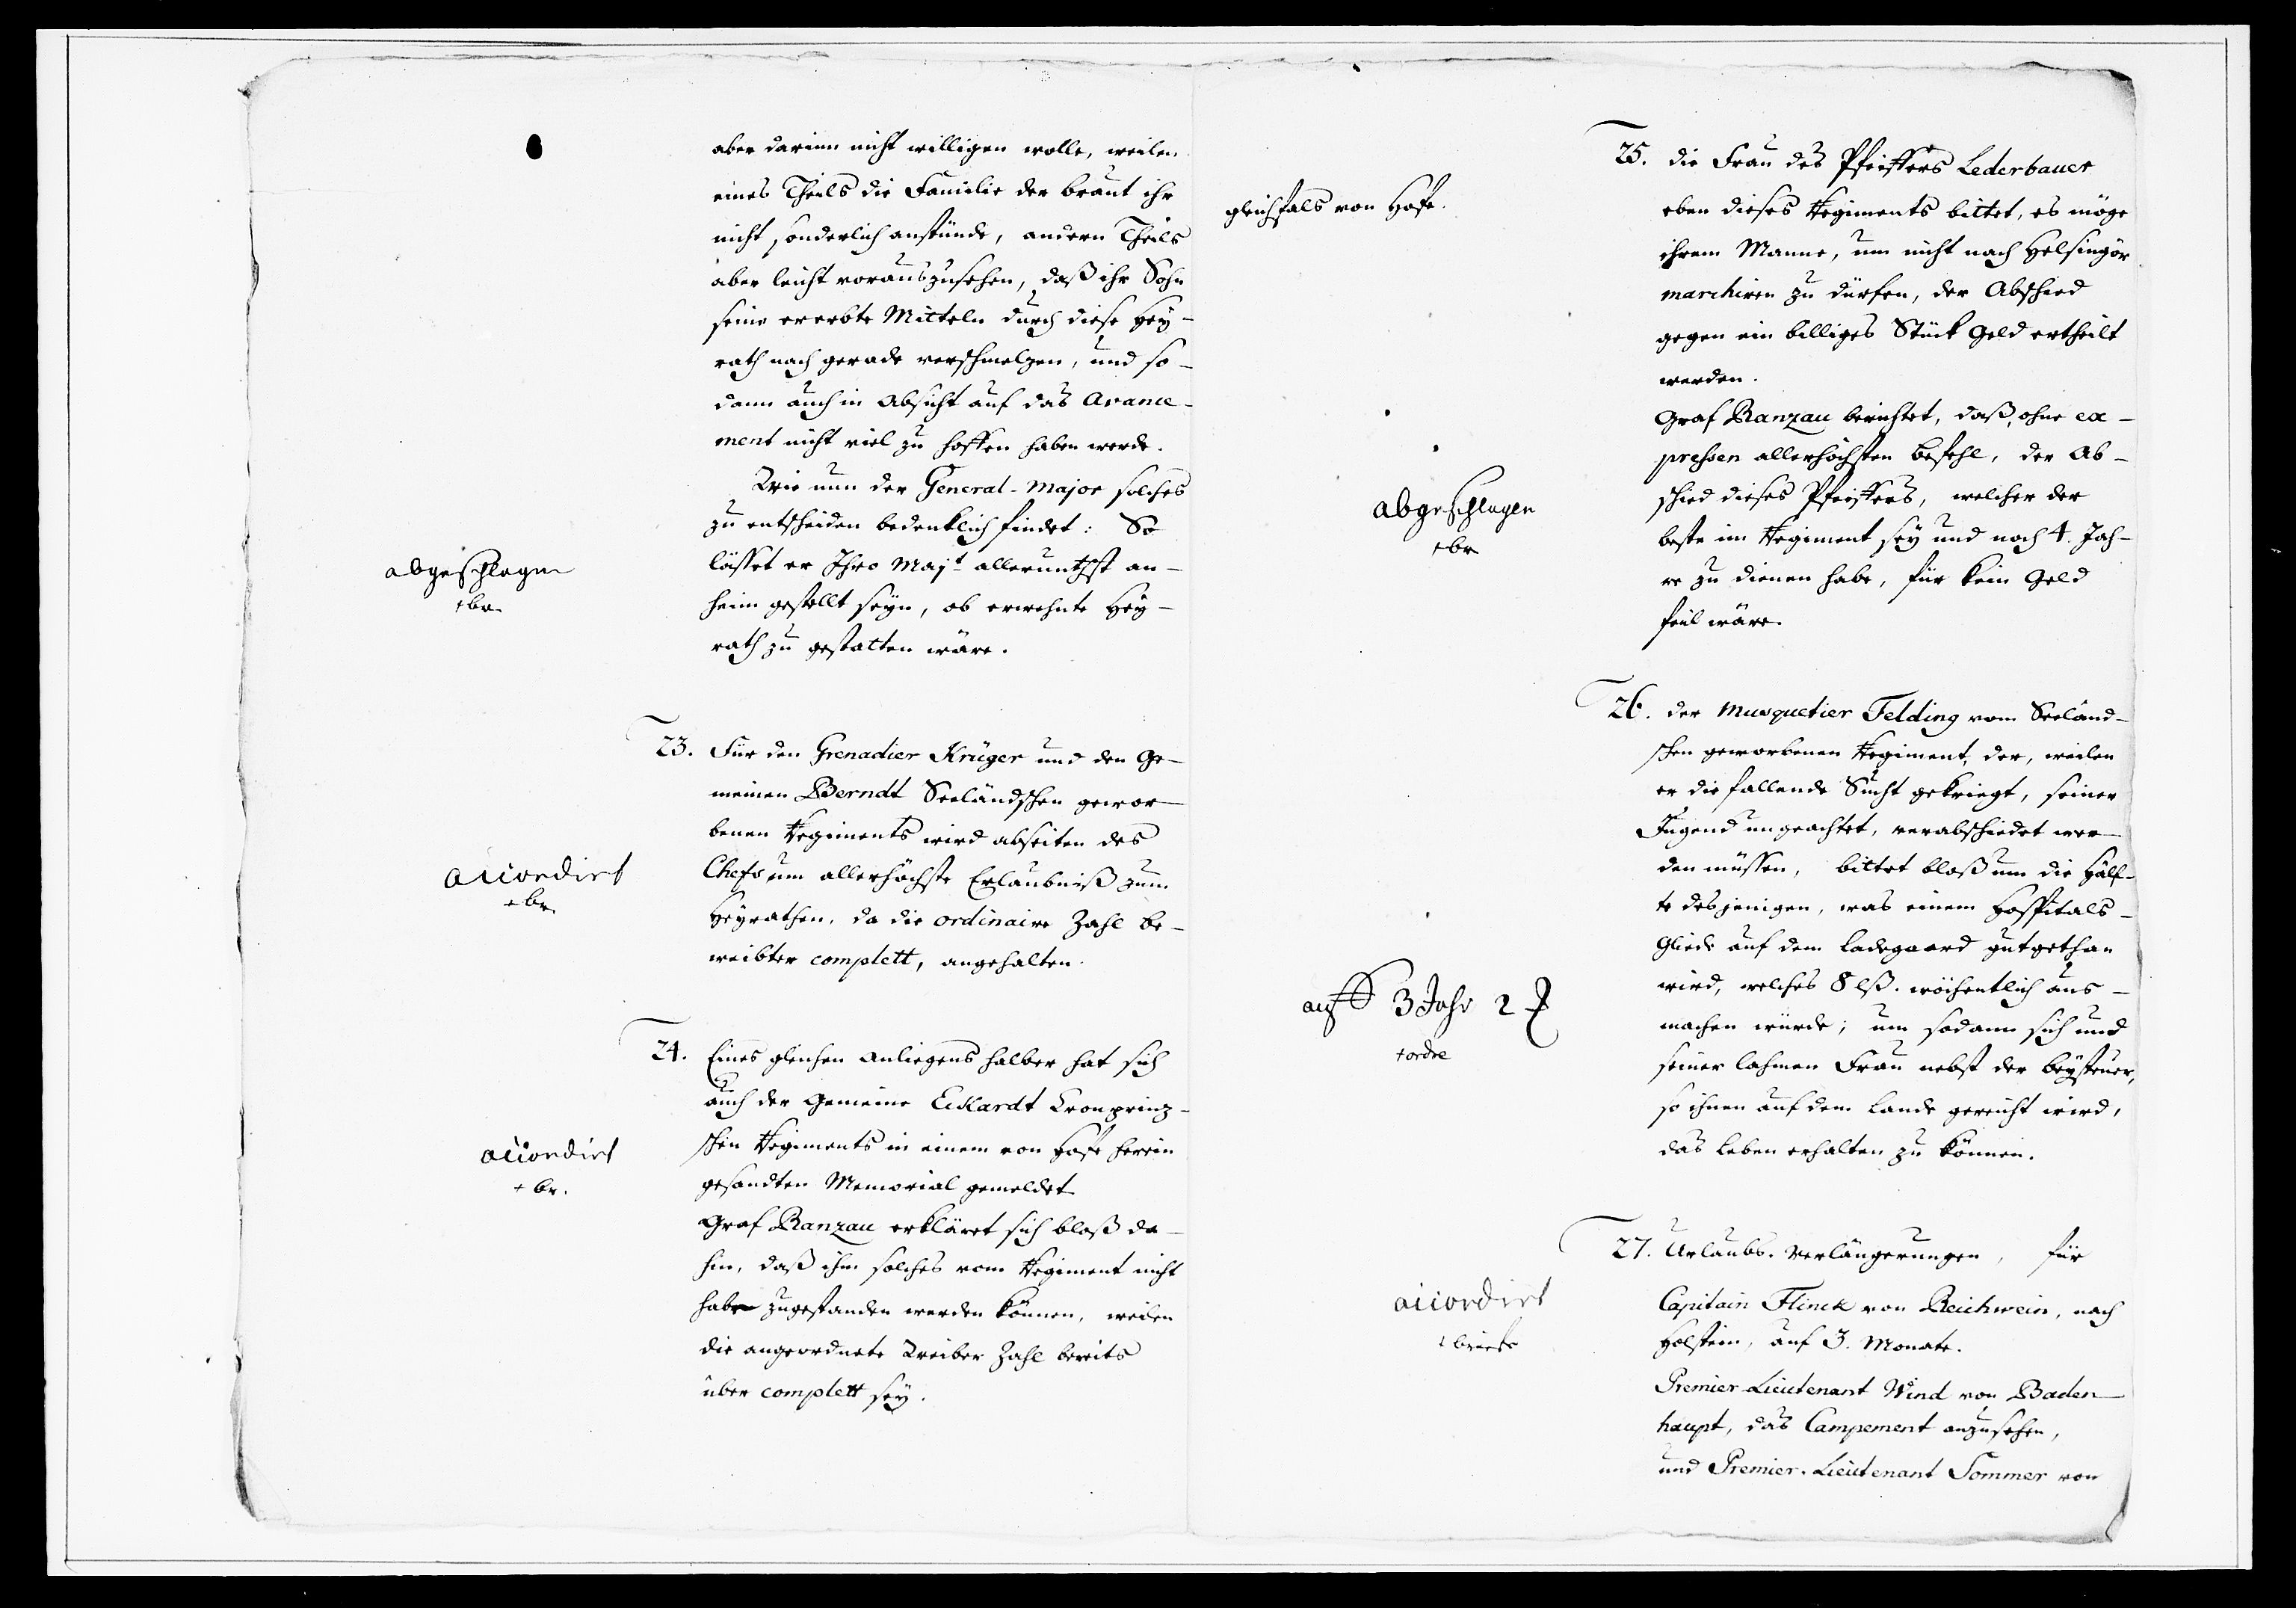 aber darinn nicht willigen wolle, weilen
eines Theils die Familie der braut ihr
nicht sonderlich anstünde, andern Theils
aber leicht vorauszusehen, daß ihr Sohn
seine ererbte Mitteln durch diese Hey-
rath nach gerade verschmelzen, und so-
dann auch in Absicht auf das Avance-
ment nicht viel zu hoffen haben werde.
Wie nun der General-Major solches
zu entscheiden bedenklich findet: So
lässet er Ihro Majt. allerunthgst an-
heim gestellt seyn, ob erwehnte Hey-
rath zu gestatten wäre.
abgeschlagen
+ br.
23. Für den Grenadier Krüger und den Ge-
meinen Berndt Seeländschen gewor-
benen Regiments wird abseiten des
Chefs um allerhöchste Erlaubniß zum
Heyrathen, da die ordinaire Zahl be-
weibter complett, angehalten.
accordirt
+ br.
24. Eines gleichen Anliegens halber hat sich
auch der Gemeine Eckardt Cronprinz-
schen Regiments in einem von Hofe herein
gesandten Memorial gemeldet
Graf Ranzau erkläret sich bloß da-
hin, daß ihm solches vom Regiment nicht
habe zugestanden werden können, weilen
die angeordnete Weiber Zahl bereits
über complett sey.
accordirt
+ br.
25. die Frau des Pfeiffers Lederbauer
eben dieses Regiments bittet, es möge
ihrem Manne, um nicht nach Helsingör
marchiren zu dürfen, der Abschied
gegen ein billiges Stück Geld ertheilt
werden.
gleichfals von Hofe.
Graf Ranzau berichtet, daß, ohne ex-
pressen allerhöchsten Befehl, der Ab-
schied dieses Pfeiffers, welcher der
beste im Regiment sey und noch 4. Jah-
re zu dienen habe, für kein Geld
feil wäre.
abgeschlagen
+ br
26. der Musquetier Felding vom Seeländ-
schen geworbenen Regiment, der, weilen
er die fallende Sucht gekriegt, seiner
Jugend ungeachtet, verabschiedet wer-
den müssen, bittet bloß um die Hälf-
te desjenigen, was einem Hospitals-
Gliede auf dem Ladegaard gutgethan
wird, welches 8 lß. wöchentlich aus-
machen würde; um sodann sich und
seiner lahmen Frau nebst der Beysteuer,
so ihnen auf dem Lande gereicht wird,
das Leben erhalten zu können.
auf 3 Jahr 2
+ ordre
27. Urlaubs-Verlängerungen, für
Capitain Flinck von Reichwein, nach
Holstein, auf 3. Monate.
Premier-Lieutenant Wind von Baden-
haupt, das Campement anzusehen,
und Premier-Lieutenant Sommer von
accordirt
+ briefe